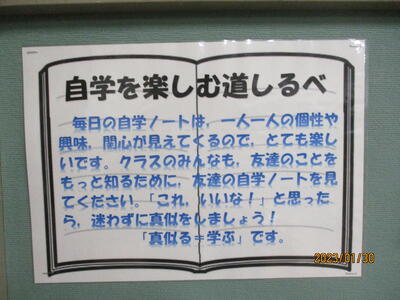 自学を楽しむ道しるべ
毎日の自学ノートは，一人一人の個性や
興味，関心が見えてくるので，とても楽し
いです。クラスのみんなも，友達のことを
もっと知るために，友達の自学ノートを見
てください。「これ，いいな！」と思った
ら，迷わずに真似をしましょう！
「真似る＝学ぶ」です。
2023/01/30